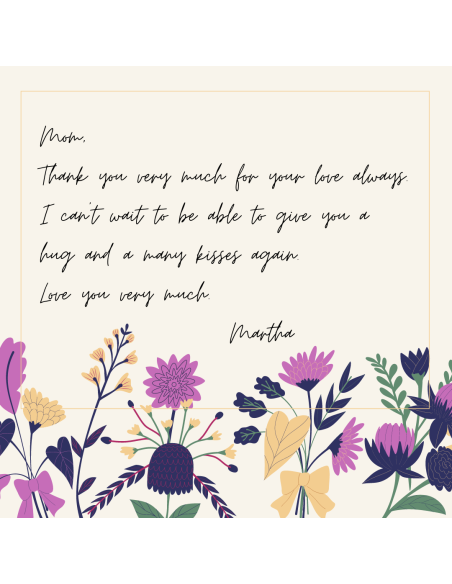 Mom,
Thank you very much for your love always.
I can't wait to be able to give you a
hug and a many kisses again.
Love you very much.
Martha